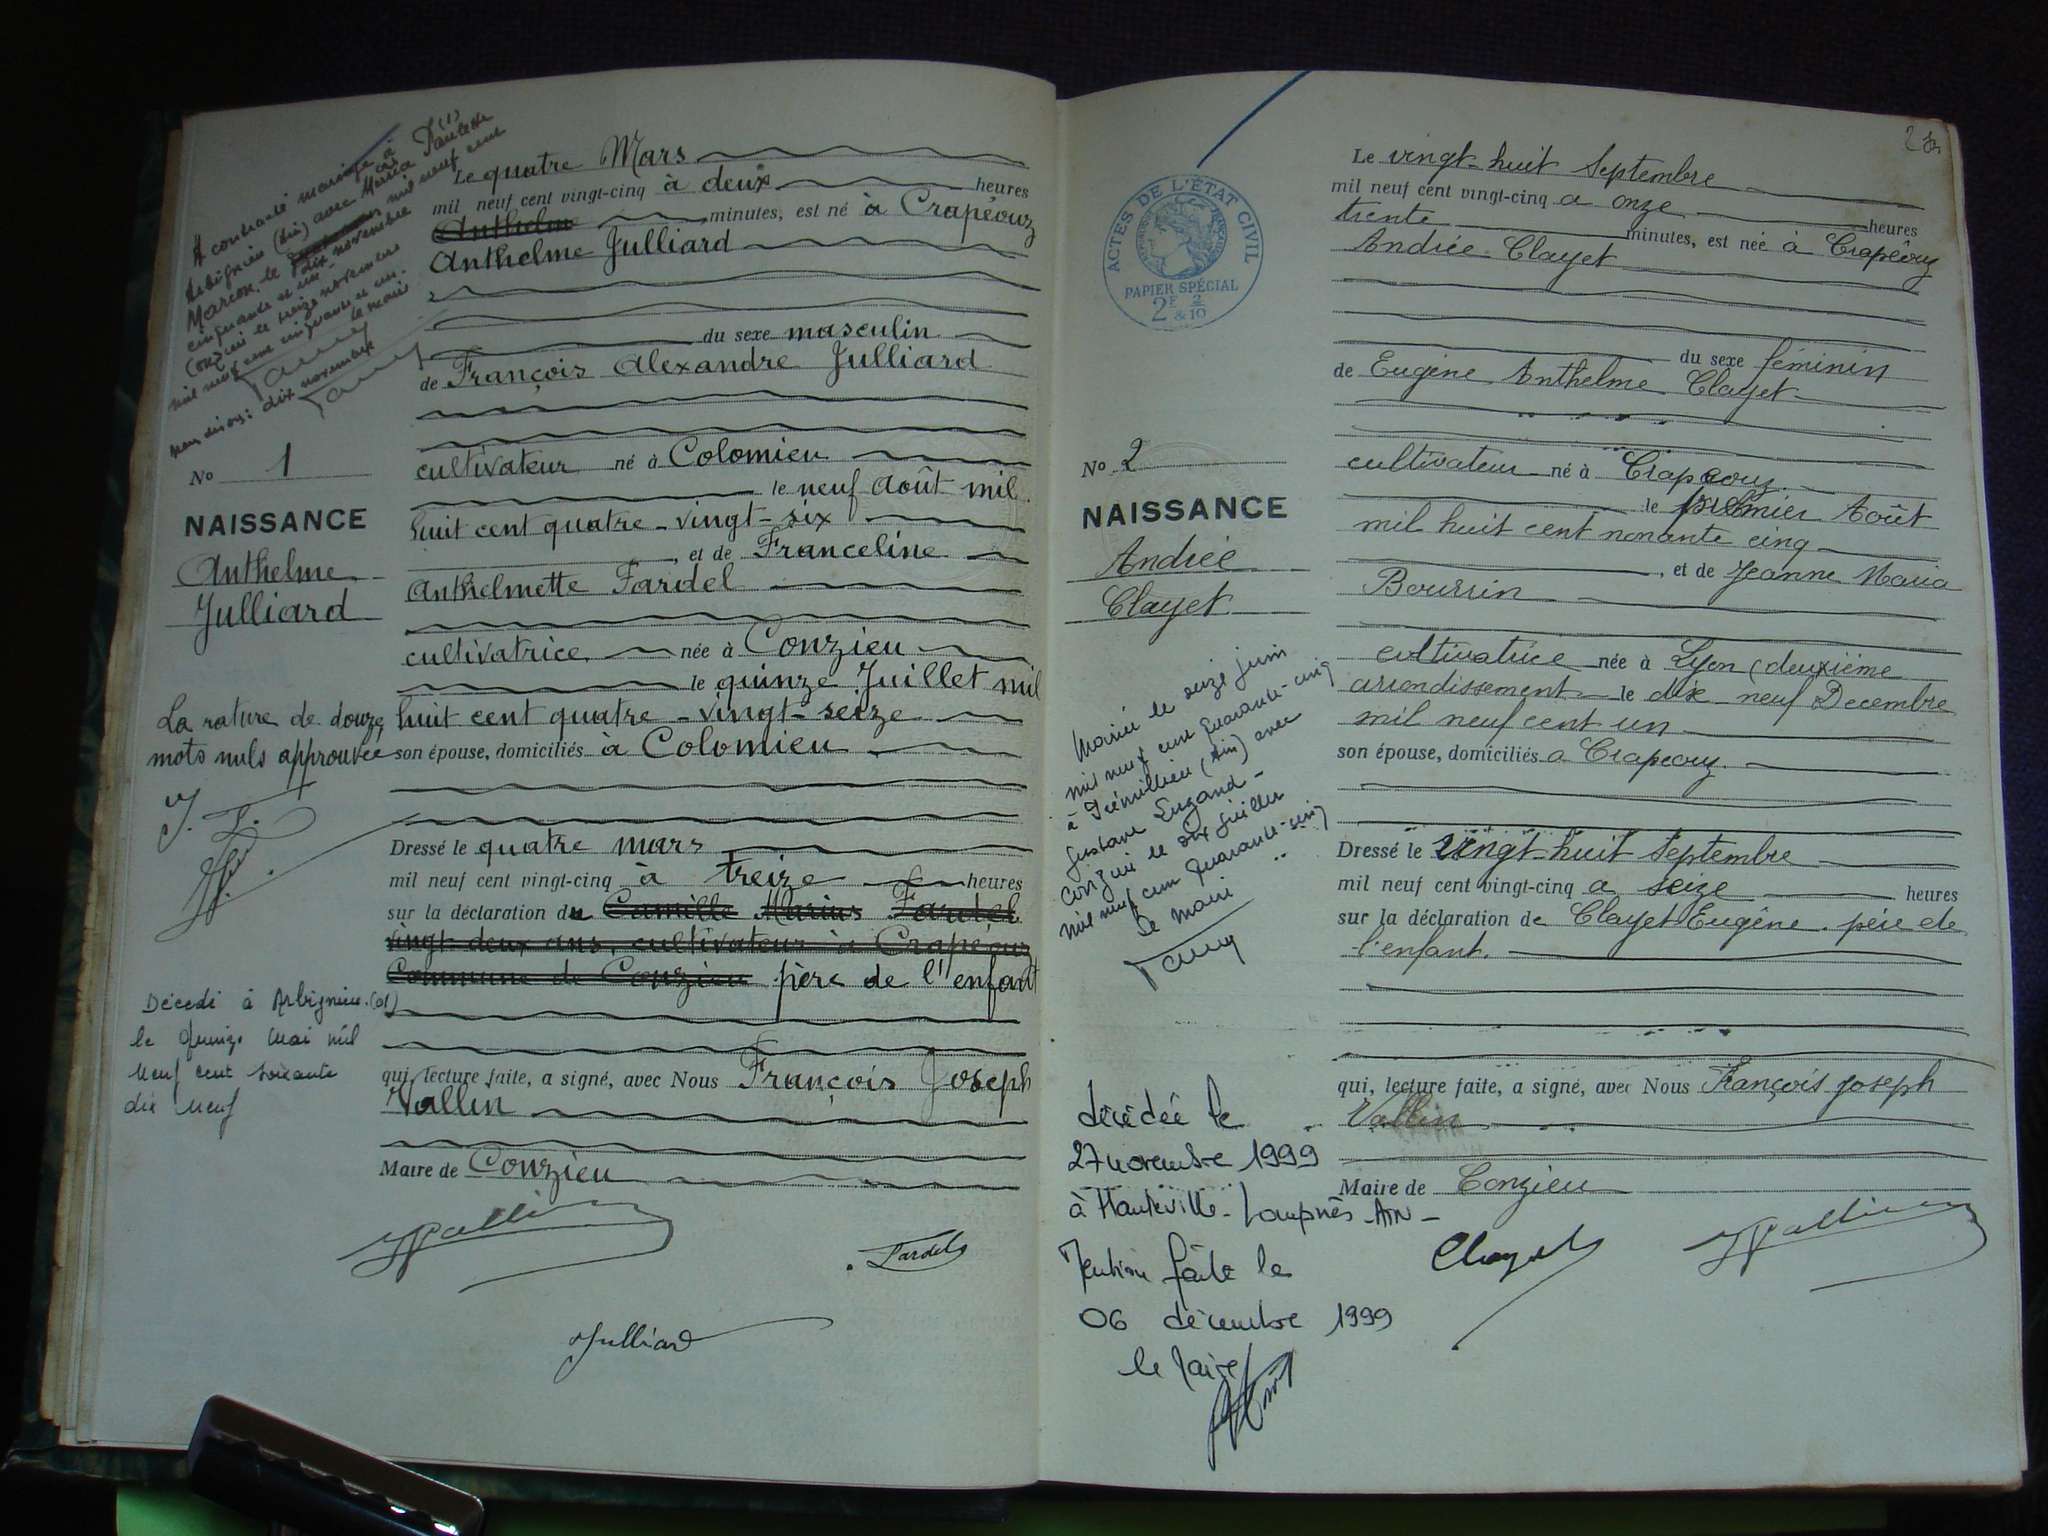 A contracté mariage à
Arbignieu (Ain) avec Maria Paulette (1)
Marcon, le dix novembre mil neuf cent
cinquante et un
Conzieu le seize novembre
mil neuf cent cinquante et un.
le maire
dix novembre
No 1
NAISSANCE
Anthelme
Julliard
La rature de douze
mots nuls approuvée
J. F.
Décédé à Arbignieu (01)
le quinze mai mil
neuf cent soixante
dix neuf
Le quatre Mars
mil neuf cent vingt-cinq à deux heures
Anthelme minutes, est né à Crapéouz
Anthelme Julliard
du sexe masculin
de François Alexandre Julliard
cultivateur né à Colomieu
le neuf Août mil
huit cent quatre-vingt-six
, et de Franceline
Anthelmette Fardel
cultivatrice née à Conzieu
le quinze Juillet mil
huit cent quatre-vingt-seize
son épouse, domiciliés à Colomieu
Dressé le quatre mars
mil neuf cent vingt-cinq à treize heures
sur la déclaration du Camille Marius Fardel
vingt-deux ans, cultivateur à Crapéouz
Commune de Conzieu père de l'enfant
qui, lecture faite, a signé, avec Nous François Joseph
Vallin
Maire de Conzieu
JVallin
Fardel
Julliard
2
ACTES DE L'ÉTAT CIVIL
PAPIER SPÉCIAL
2F 2/10
No 2
NAISSANCE
Andrée
Clayet
Mariée le seize juin
mil neuf cent quarante-cinq
à Prémillieu (Ain) avec
Gustave Lugand -
Conzieu le dix juillet
mil neuf cent quarante-cinq
Le Maire
décédée le
27 novembre 1999
à Hauteville-Lompnès-AIN-
Mention faite le
06 décembre 1999
le Maire
Le vingt-huit Septembre
mil neuf cent vingt-cinq a onze heures
trente minutes, est née à Crapéouz
Andrée Clayet
du sexe féminin
de Eugène Anthelme Clayet
cultivateur né à Crapeouz
le premier Août
mil huit cent nonante cinq
, et de Jeanne Maria
Boursin
cultivatrice née à Lyon (deuxième
arrondissement le dix-neuf Decembre
mil neuf cent un
son épouse, domiciliés a Crapeouz
Dressé le vingt-huit Septembre
mil neuf cent vingt-cinq a seize heures
sur la déclaration de Clayet Eugène. père de
l'enfant.
qui, lecture faite, a signé, avec Nous François Joseph
Vallin
Maire de Conzieu
Clayet
JVallin